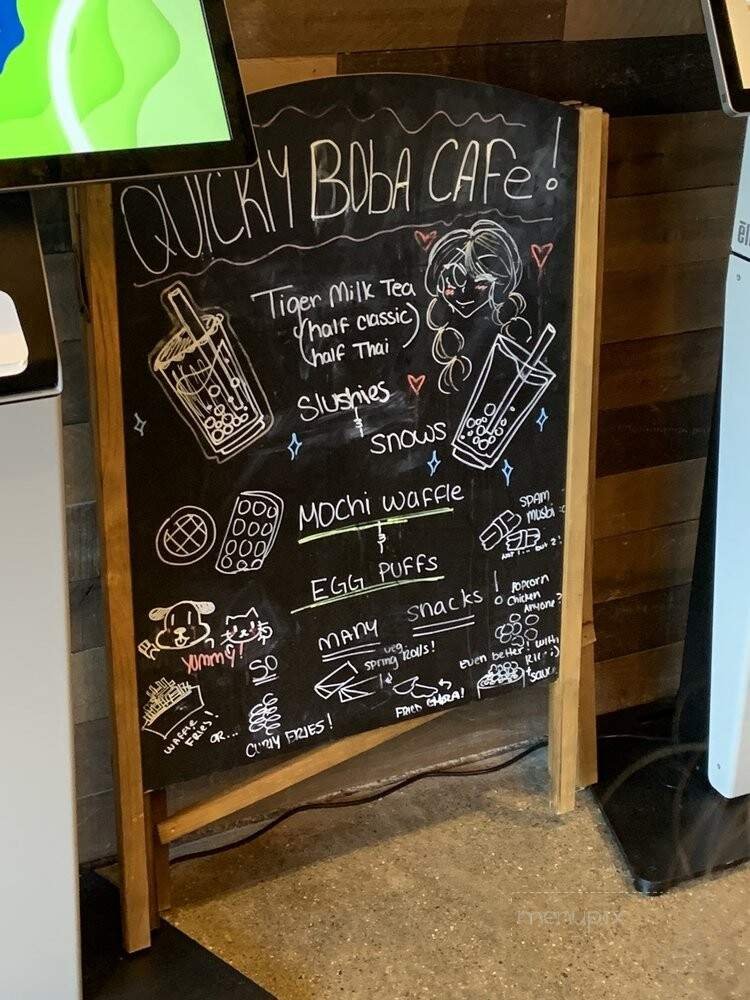 QUICKLY BOBA CAFE!
Tiger Milk Tea
(half classic)
(half Thai
Slushies
&
SNOWS
MOCHI WAFFLE
&
EGG PUFFS
SPAM
MUSBI
NOT 1... but 2!
POPCORN
Chicken
Anyone?
SO
MANY
SNACKS!
Yummy!
veg
SPRING ROLLS!
even better! with
+ sauce
WAFFLE
FRIES!
OR...
CURLY FRIES!
FRIED GYOZA!
menupix